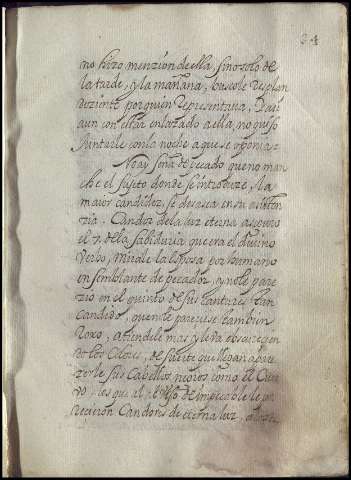 64
no hizo menzion de ella, sino solo de
la tarde, y la mañana, buscole resplan
deziente por quien representaua, Dad
aun con estar enlazado a ella, no quiso
Juntarle con la noche a que se oponia:
No ay seña de pecado que no man
che el sujeto donde se introduze, la
maior candidez, se desazea en su asisten
zia. Candor de la luz eterna aseguro
el 7. de la Sabiduria que era el diuino
Verbo, mirale la esposa por humano
en semblante de pecador, y no le pare
zio en el quinto de sus Cantares tan
candido, que no le pareziese tambien
Roxo, atiendele mas y le va obscurezien
do los Colores, de suerte que llegan a pare
zerle sus Cabellos negros como el Cuer
uo, y es que al que de impecable le pa
rezieron Candores de eterna luz,